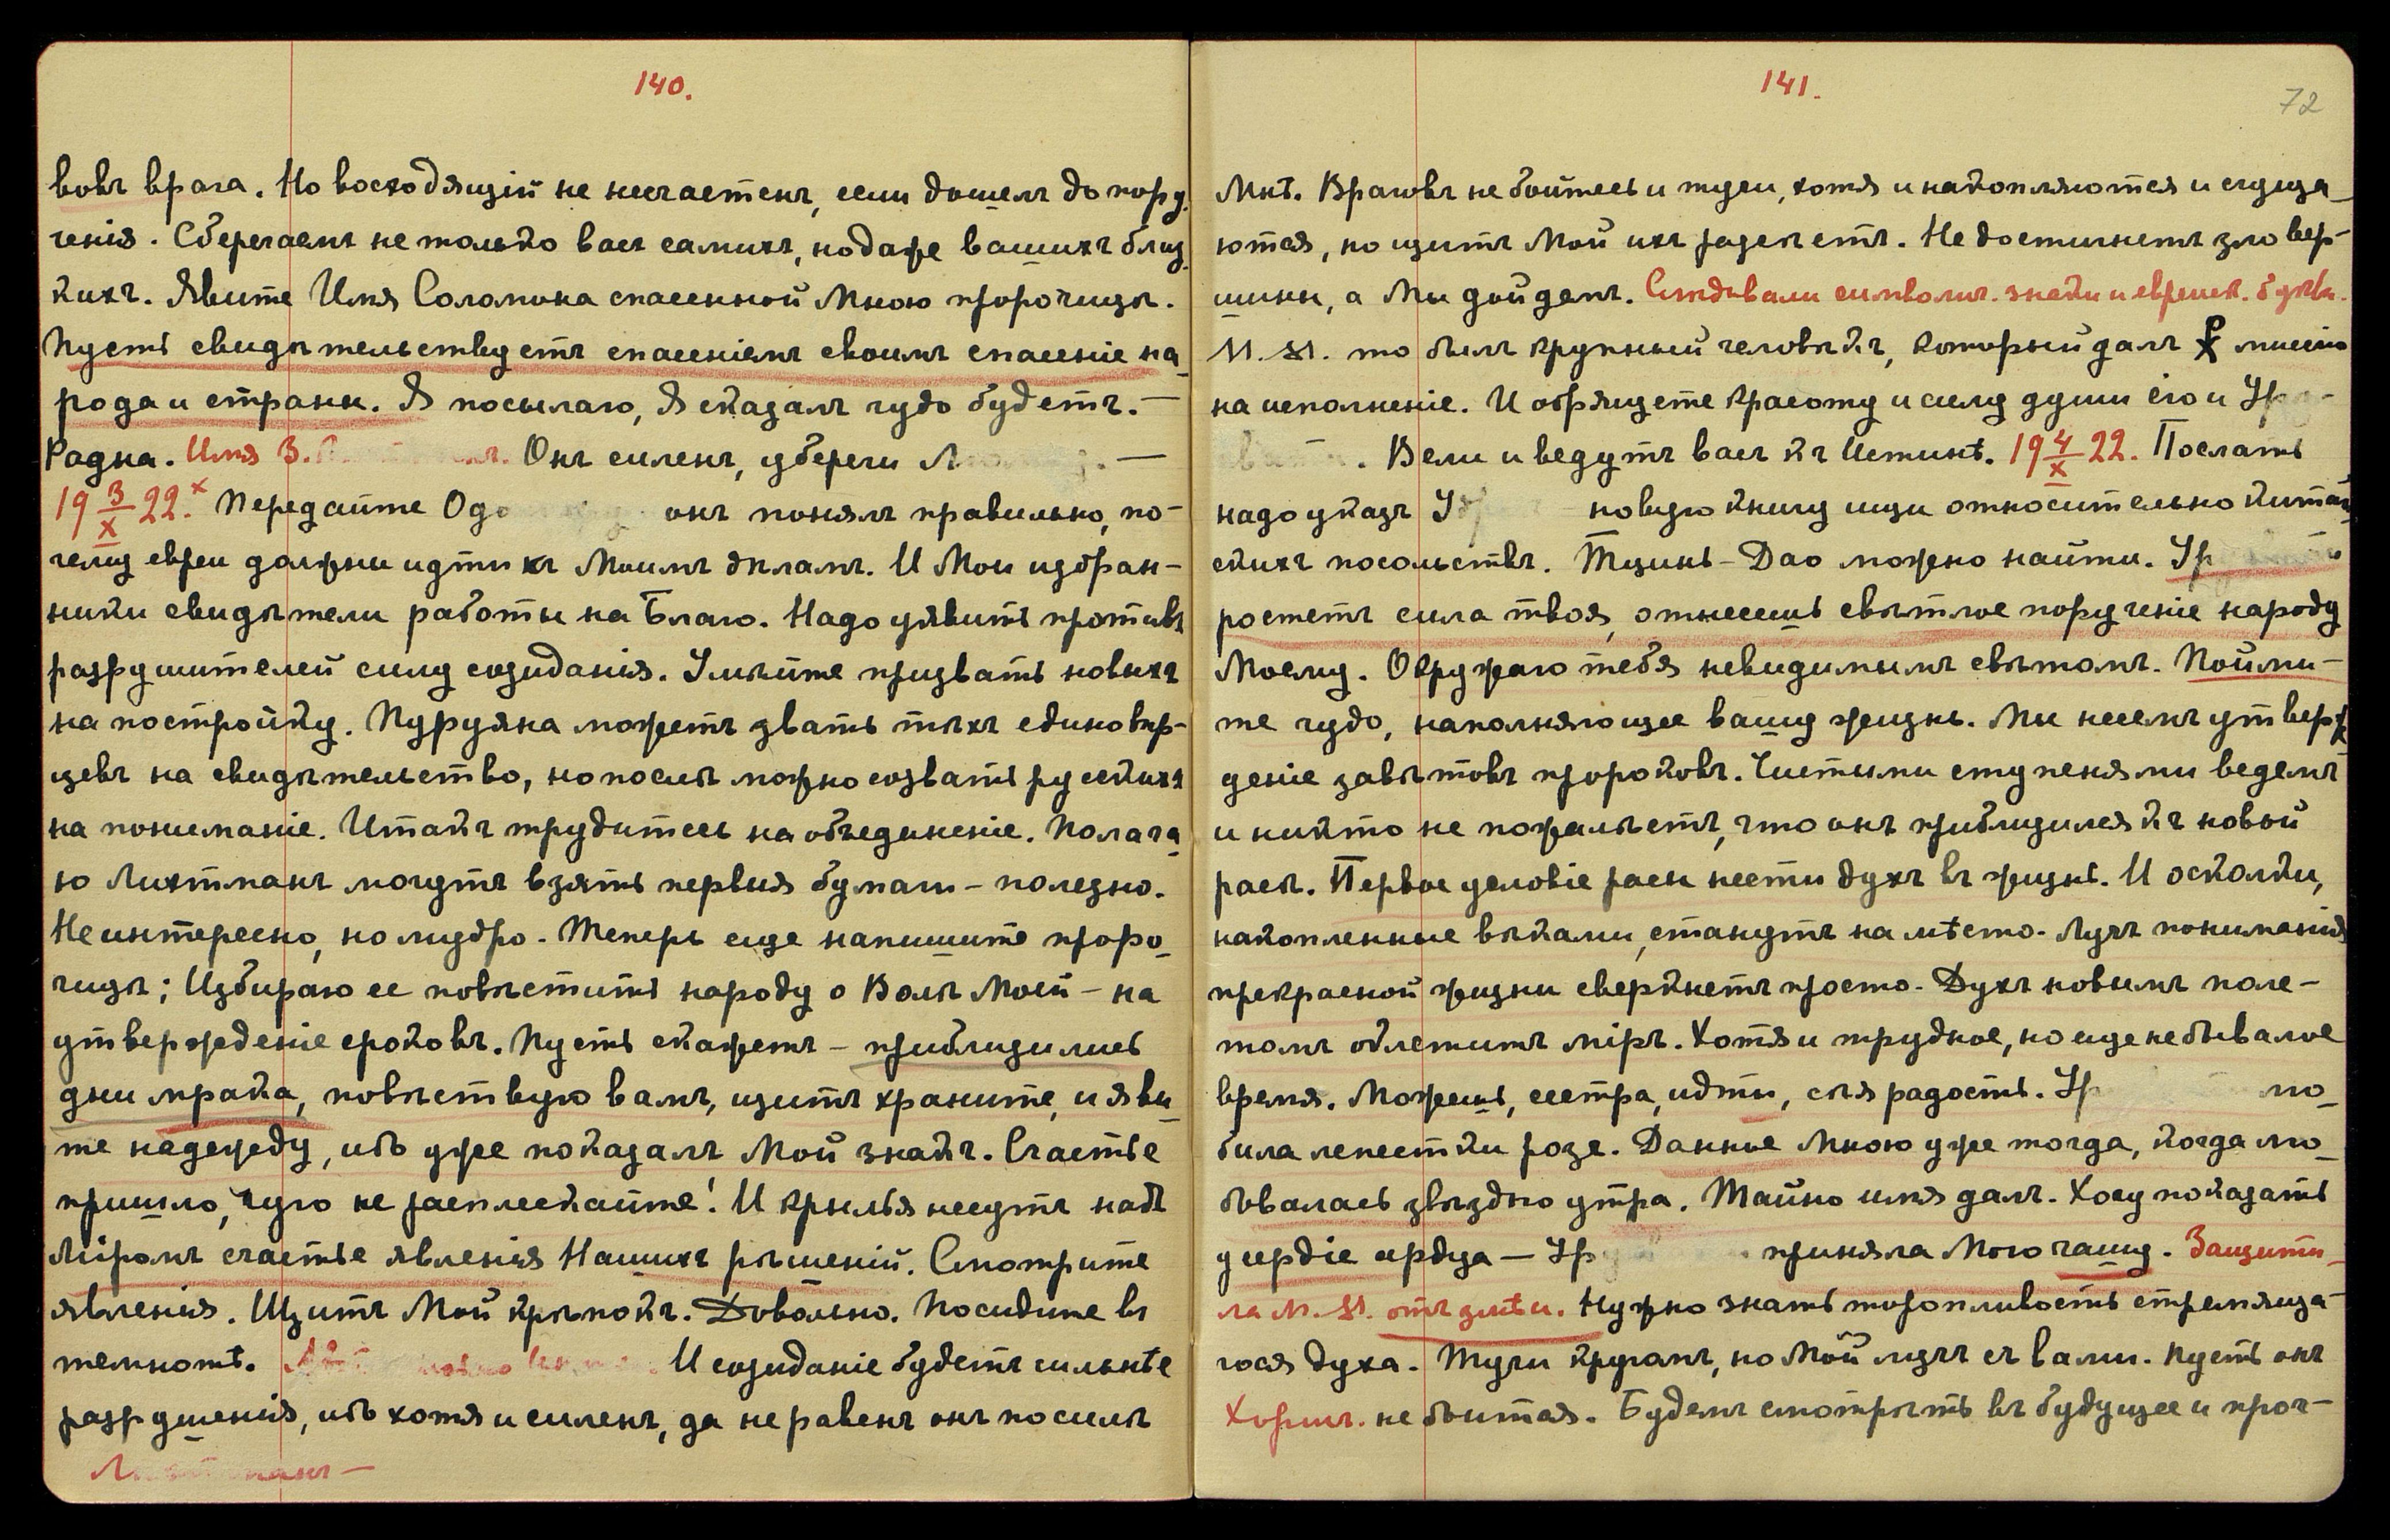 140.
вовъ врага. Но восходящій не несчастенъ, если дошелъ до пору-
ченія. Сберегаемъ не только васъ самихъ, но даже вашихъ близ-
кихъ. Явите Имя Соломона спасенной Мною пророчицѣ.
Пусть свидѣтельствуетъ спасеніемъ своимъ спасеніе на-
рода и страны. Я посылаю, Я сказалъ чудо будетъ. —
Радна. Имя З. Онъ силенъ, убереги —
19 3/X 22.x Передайте Одо онъ понялъ правильно, по-
чему евреи должны идти къ Моимъ дѣламъ. И Мои избран-
ники свидѣтели работы на Благо. Надо уявить противъ
разрушителей силу созиданія. Умѣйте призвать новыхъ
на постройку. Пуруяна можетъ звать тѣхъ единовѣр-
цевъ на свидѣтельство, но послѣ можно созвать русскихъ
на пониманіе. Итакъ трудитесь на объединеніе. Полага-
ю Лихтманъ могутъ взять первыя бумаги – полезно.
Неинтересно, но мудро. Теперь еще напишите проро-
чицѣ; Избираю ее повѣстить народу о Волѣ Моей – на
утвержденіе сроковъ. Пусть скажетъ – приблизились
дни мрака, повѣствую вамъ, щитъ храните, и яви-
те надежду, ибо уже показалъ Мой знакъ. Счастье
пришло, чую не расплескайте! И крылья несутъ надъ
Міромъ счастье явленія Нашихъ рѣшеній. Смотрите
явленія. Щитъ Мой крѣпокъ. Довольно. Посидите въ
темнотѣ. И созиданіе будетъ сильнѣе
разрушенія, ибо хотя и силенъ, да не равенъ онъ по силѣ
141.
72
Мнѣ. Враговъ не бойтесь и тучи, хотя и накопляются и сгуща-
ются, но щитъ Мой ихъ разсѣетъ. Не достигнетъ зло вер-
шины, а Мы дойдемъ. Слѣдовали символич. знаки и еврейск. буквы.
М. М. то былъ крупный человѣкъ, который далъ миссію
на исполненіе. И обрящете красоту и силу души его и Ур
. Вели и ведутъ васъ къ Истинѣ. 19 4/X 22. Послать
надо указъ У новую книгу ищи относительно китай-
скихъ посольствъ. Тцинь-Дао можно найти. Ур
ростетъ сила твоя, отнесешь свѣтлое порученіе народу
Моему. Окружаю тебя невидимымъ свѣтомъ. Пойми-
те чудо, наполняющее вашу жизнь. Мы несемъ утверж-
деніе завѣтовъ пророковъ. Чистыми ступенями ведемъ
и никто не пожалѣетъ, что онъ приблизился къ новой
расѣ. Первое условіе расы нести духъ въ жизнь. И осколки,
накопленные вѣками, станутъ на мѣсто. Лучъ пониманія
прекрасной жизни сверкнетъ просто. Духъ новымъ поле-
томъ облетитъ міръ. Хотя и трудное, но еще небывалое
время. Можешь, сестра, идти, сѣя радость. Ур лю-
била лепестки розъ. Данное Мною уже тогда, когда лю-
бовалась звѣздою утра. Тайно имя далъ. Хочу показать
усердіе сердца — Ур приняла Мою чашу. Защити-
ла М. М. отъ змѣи. Нужно знать торопливость стремяща-
гося духа. Тучи кругомъ, но Мой лучъ съ вами. Пусть онъ
Хоршъ. не боится. Будемъ смотрѣть въ будущее и проч-